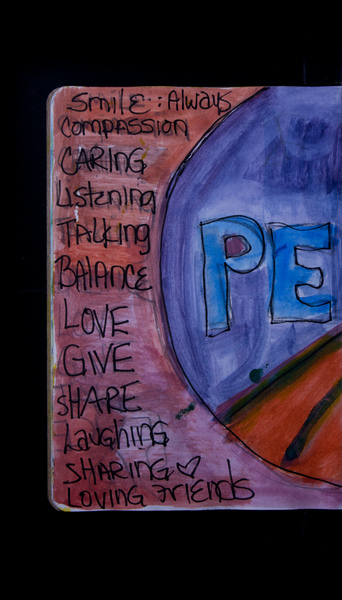 Smile :: Always
Compassion
CARING
Listening
TALKing
BALANCE
LOVE
GIVE
SHARE
Laughing
SHARING ♡
LOVING Friends
PE